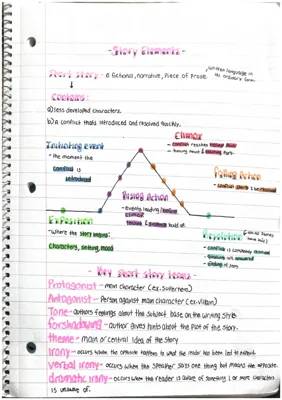 -Story Elements-
Short Story - a fictional, narrative, piece of Prose
written language in its ordinary form
Contains:
a) less developed characters.
b) a conflict that's introduced and resolved quickly.
Climax
- conflict reaches
- turning point &
Initiating event
- the moment the
conflict is
introduced
Falling Action
- conflict starts
Rising Action
- events leading
climax
&
Exposition
- Where the story begins:
characters, setting, mood
Resolution
- conflict is
- ending of story
- Key short story terms -
Protagonist - main character (ex. Superhero)
Antagonist - Person against main character (ex. villain)
Tone - authors feelings about the subject base on the writing style
forshadowing - author gives hints about the Plot of the story.
theme - main or central idea of the story
irony - occurs when the opposite happens to what the reader has been led to expect.
verbal irony - occurs when the speaker says one thing but means the opposite.
dramatic irony - occurs when the reader is aware of something 1 or more characters
is unaware of.